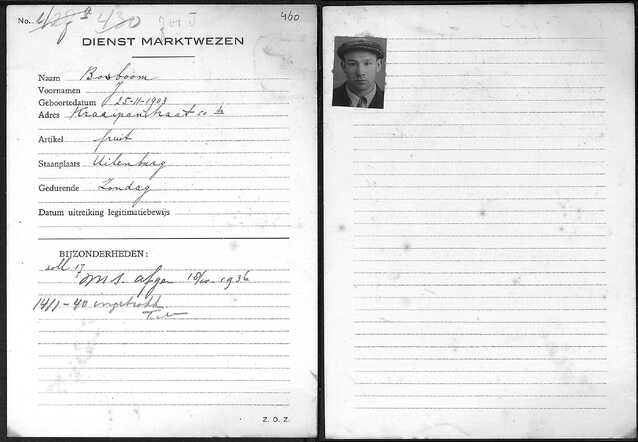 No. 430 460
DIENST MARKTWEZEN
Naam Bosboom
Voornamen J
Geboortedatum 25-11-1903
Adres Kraaipanstraat 50 hs
Artikel fruit
Staanplaats Uilenburg
Gedurende Zondag
Datum uitreiking legitimatiebewijs
BIJZONDERHEDEN:
soll. 17
afgen 1936
14/1-40
Z. O. Z.